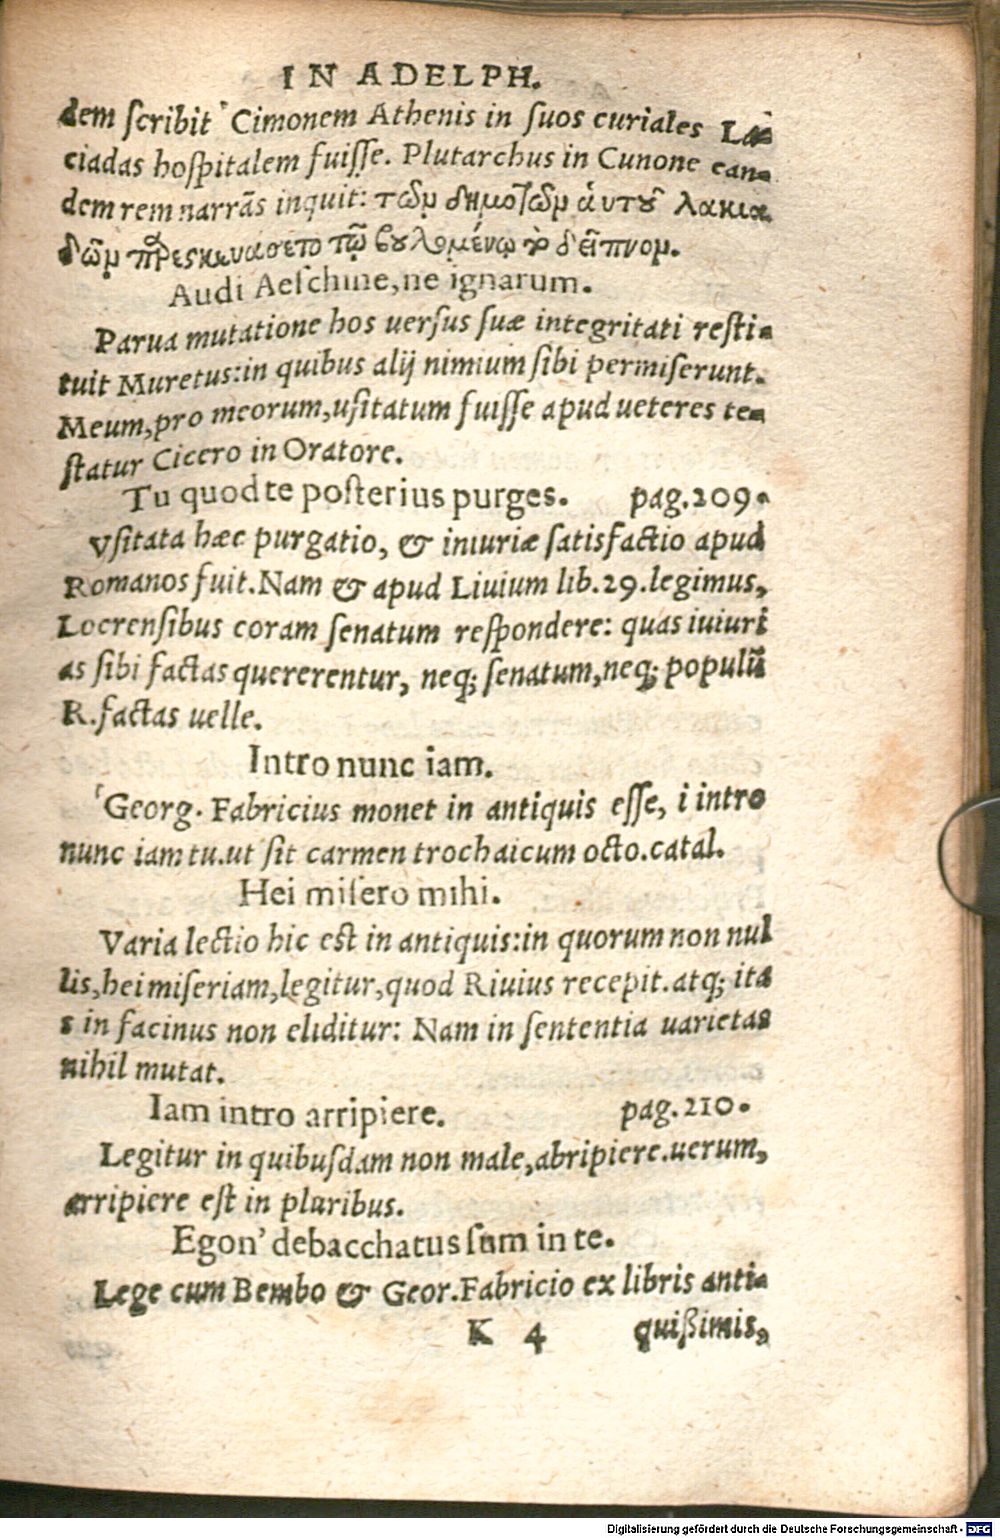 IN ADELPH.
dem scribit Cimonem Athenis in suos curiales La-
ciadas hospitalem fuisse. Plutarchus in Cunone ean-
dem rem narrãs inquit: τῶμ δημοτῶμ ἁυτοῦ λακια
δῶμ πρεσκευάσετο τῷ βουλομένῳ τὸ δεῖπνομ.
Audi Aeschine, ne ignarum.
Parua mutatione hos uersus suæ integritati resti-
tuit Muretus: in quibus alij nimium sibi permiserunt.
Meum, pro meorum, usitatum fuisse apud ueteres te-
statur Cicero in Oratore.
Tu quod te posterius purges. pag. 209.
Vsitata hæc purgatio, & iniuriæ satisfactio apud
Romanos fuit. Nam & apud Liuium lib. 29. legimus,
Locrensibus coram senatum respondere: quas iuiuri
as sibi factas quererentur, neq; senatum, neq; populũ
R. factas uelle.
Intro nunc iam.
Georg. Fabricius monet in antiquis esse, i intro
nunc iam tu. ut sit carmen trochaicum octo. catal.
Hei misero mihi.
Varia lectio hic est in antiquis: in quorum non nul
lis, hei miseriam, legitur, quod Riuius recepit. atq; ita
s in facinus non eliditur: Nam in sententia uarietas
nihil mutat.
Iam intro arripiere. pag. 210.
Legitur in quibusdam non male, abripiere. uerum,
arripiere est in pluribus.
Egon' debacchatus sum in te.
Lege cum Bembo & Geor. Fabricio ex libris anti-
K 4 quißimis,
Digitalisierung gefördert durch die Deutsche Forschungsgemeinschaft - DFG